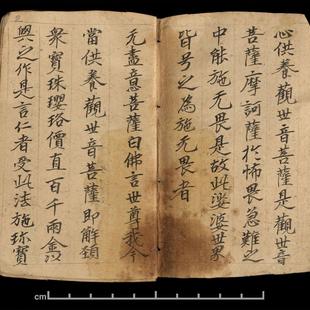 心供養觀世音菩薩是觀世音
菩薩摩訶薩於怖畏急難之
中能施无畏是故此娑婆世界
皆号之為施无畏者
无盡意菩薩白佛言世尊我今
當供養觀世音菩薩即解頸
衆寶珠瓔珞價直百千兩金以
與之作是言仁者受此法施珎寶
cm